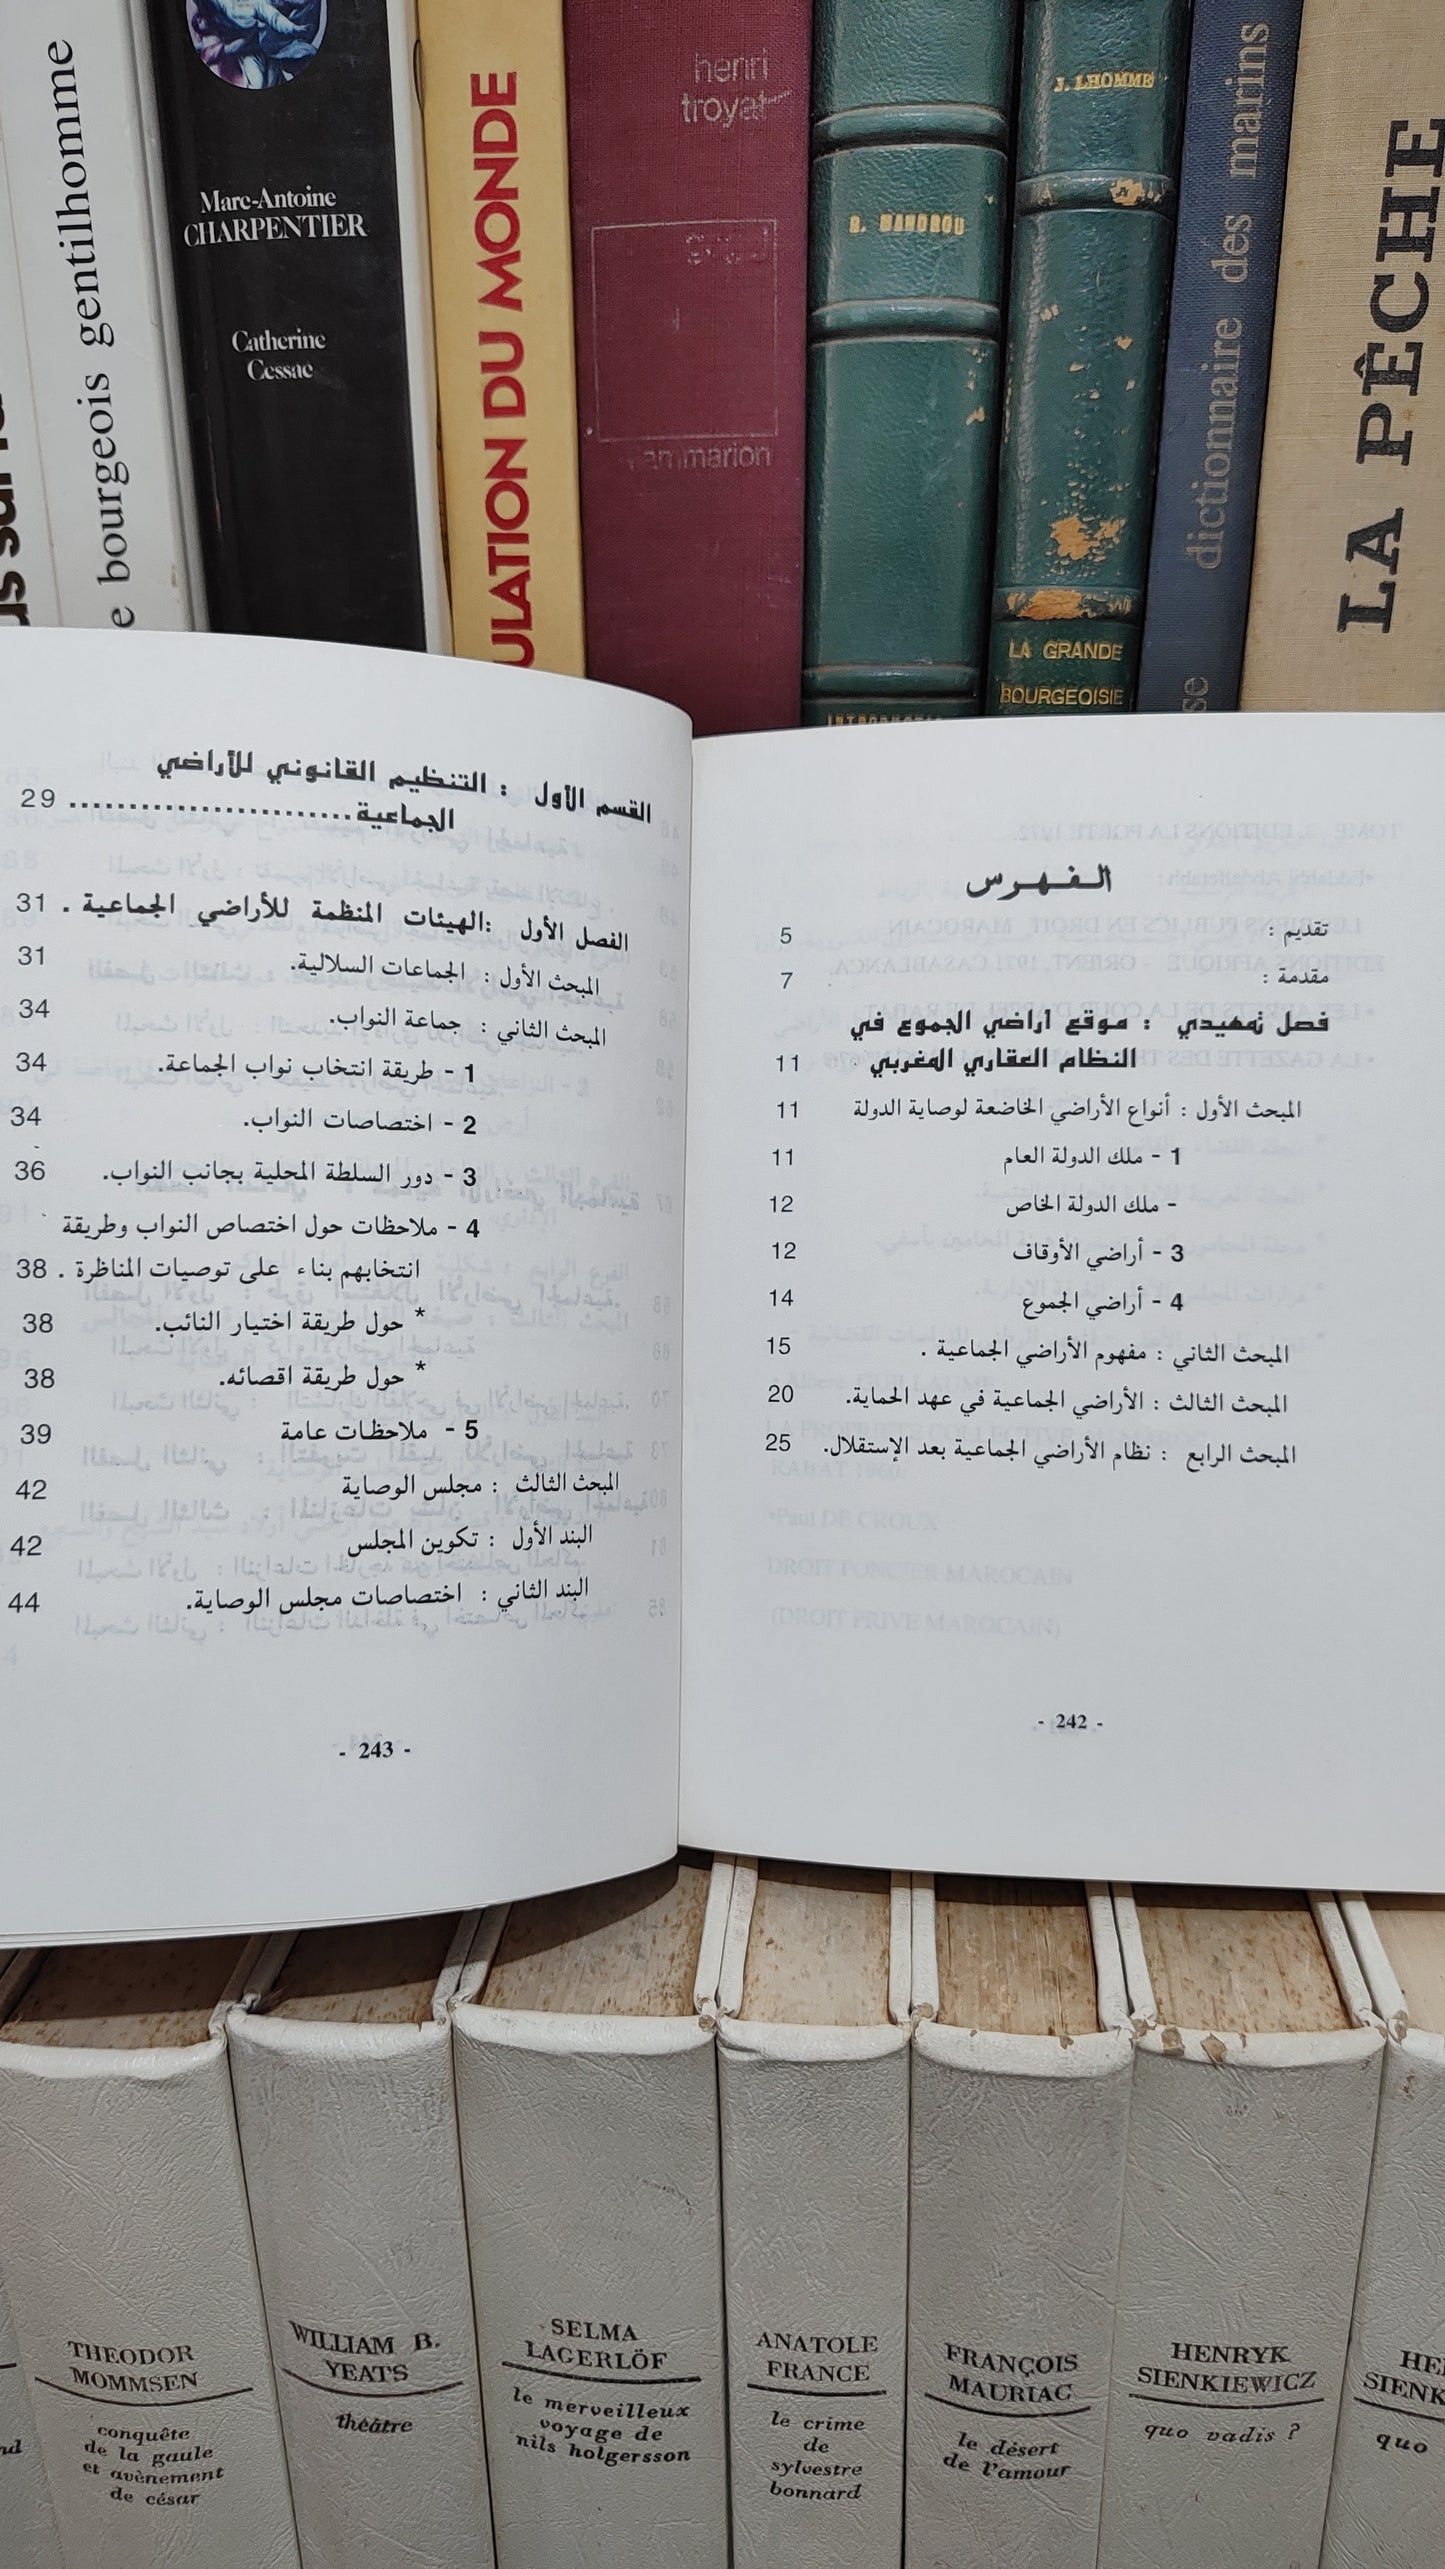 bourgeois gentilhomme
Marc-Antoine
CHARPENTIER
Catherine
Cessac
ULATION DU MONDE
henri
troyat
flammarion
R. MANDROU
J. LHOMME
LA GRANDE
BOURGEOISIE
dictionnaire des marins
LA PÊCHE
الفهرس
تقديم : 5
مقدمة : 7
فصل تمهيدي : موقع اراضي الجموع في
النظام العقاري المغربي 11
المبحث الأول : أنواع الأراضي الخاضعة لوصاية الدولة 11
1 - ملك الدولة العام 11
- ملك الدولة الخاص 12
3 - أراضي الأوقاف 12
4 - أراضي الجموع 14
المبحث الثاني : مفهوم الأراضي الجماعية . 15
المبحث الثالث : الأراضي الجماعية في عهد الحماية. 20
المبحث الرابع : نظام الأراضي الجماعية بعد الإستقلال. 25
- 242 -
القسم الأول : التنظيم القانوني للأراضي
الجماعية........................ 29
الفصل الأول :الهيئات المنظمة للأراضي الجماعية . 31
المبحث الأول : الجماعات السلالية. 31
المبحث الثاني : جماعة النواب. 34
1 - طريقة انتخاب نواب الجماعة. 34
2 - اختصاصات النواب. 34
3 - دور السلطة المحلية بجانب النواب. 36
4 - ملاحظات حول اختصاص النواب وطريقة
انتخابهم بناء على توصيات المناظرة . 38
* حول طريقة اختيار النائب. 38
* حول طريقة اقصائه. 38
5 - ملاحظات عامة 39
المبحث الثالث : مجلس الوصاية 42
البند الأول : تكوين المجلس 42
البند الثاني : اختصاصات مجلس الوصاية. 44
- 243 -
THEODOR
MOMMSEN
conquête
de la gaule
et avènement
de césar
WILLIAM B.
YEATS
théâtre
SELMA
LAGERLÖF
le merveilleux
voyage de
nils holgersson
ANATOLE
FRANCE
le crime
de
sylvestre
bonnard
FRANÇOIS
MAURIAC
le désert
de l'amour
HENRYK
SIENKIEWICZ
quo vadis ?
HE
SIENK
quo